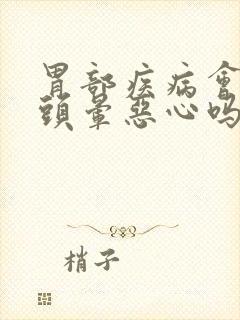 胃部疾病會
頭暈惡心嗎
梢子